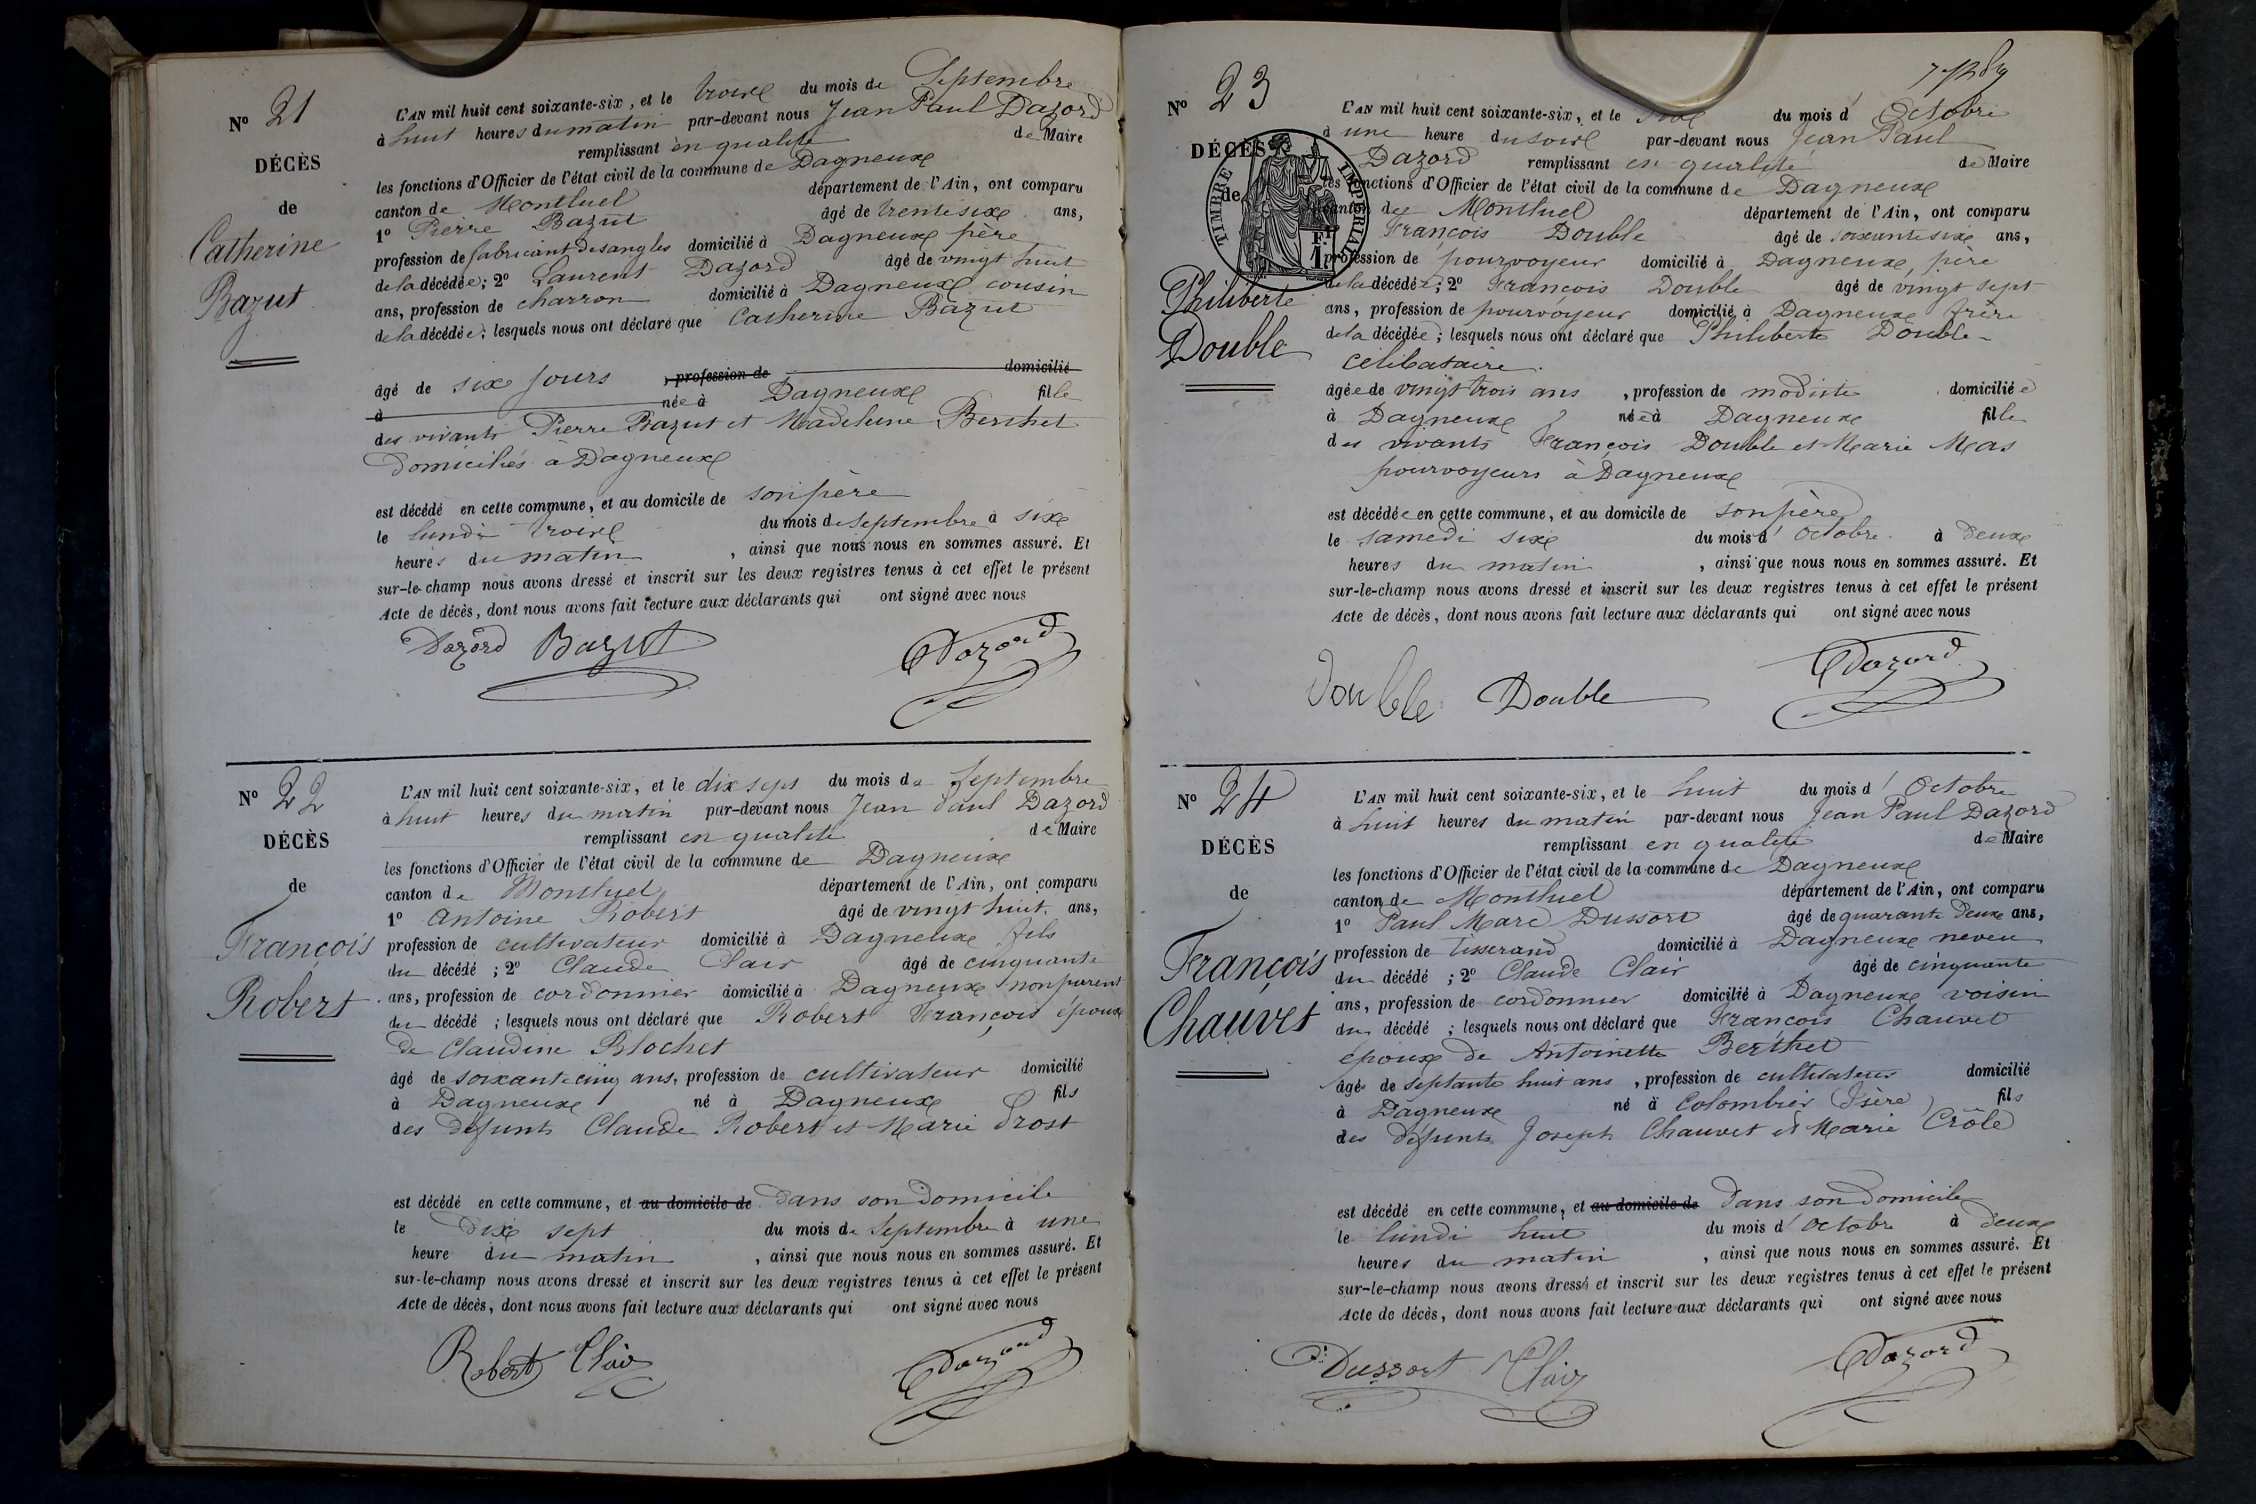 No 21
DÉCÈS
de
Catherine
Bazut
L'AN mil huit cent soixante-six, et le trois du mois de Septembre
à huit heures du matin par-devant nous Jean Paul Dazord
remplissant en qualité de Maire
les fonctions d'Officier de l'état civil de la commune de Dagneux
canton de Montluel département de l'Ain, ont comparu
1º Pierre Bazut âgé de trente six ans,
profession de fabricant de sangles domicilié à Dagneux père
de la décédée; 2º Laurent Dazord âgé de vingt huit
ans, profession de charron domicilié à Dagneux cousin
de la décédée; lesquels nous ont déclaré que Catherine Bazut
âgé de six jours , profession de domicilié
à née à Dagneux fille
des vivants Pierre Bazut et Madeleine Berthet
domiciliés à Dagneux
est décédé en cette commune, et au domicile de son père
le lundi trois du mois de Septembre à six
heures du matin , ainsi que nous nous en sommes assuré. Et
sur-le-champ nous avons dressé et inscrit sur les deux registres tenus à cet effet le présent
Acte de décès, dont nous avons fait lecture aux déclarants qui ont signé avec nous
Dazord Bazut Dazord
No 22
DÉCÈS
de
François
Robert
L'AN mil huit cent soixante-six, et le dix sept du mois de Septembre
à huit heures du matin par-devant nous Jean Paul Dazord
remplissant en qualité de Maire
les fonctions d'Officier de l'état civil de la commune de Dagneux
canton de Montluel département de l'Ain, ont comparu
1º Antoine Robert âgé de vingt huit ans,
profession de cultivateur domicilié à Dagneux fils
du décédé ; 2º Claude Clair âgé de cinquante
ans, profession de cordonnier domicilié à Dagneux non parent
du décédé ; lesquels nous ont déclaré que Robert François époux
de Claudine Blochet
âgé de soixante cinq ans, profession de cultivateur domicilié
à Dagneux né à Dagneux fils
des défunts Claude Robert et Marie Prost
est décédé en cette commune, et au domicile de dans son domicile
le dix sept du mois de Septembre à une
heure du matin , ainsi que nous nous en sommes assuré. Et
sur-le-champ nous avons dressé et inscrit sur les deux registres tenus à cet effet le présent
Acte de décès, dont nous avons fait lecture aux déclarants qui ont signé avec nous
Robert Clair Dazord
No 23
DÉCÈS
de
TIMBRE IMPÉRIAL
1 F.
Philiberte
Double
L'AN mil huit cent soixante-six, et le six du mois d'Octobre
à une heure du soir par-devant nous Jean Paul
Dazord remplissant en qualité de Maire
les fonctions d'Officier de l'état civil de la commune de Dagneux
canton de Montluel département de l'Ain, ont comparu
François Double âgé de soixante six ans,
profession de pourvoyeur domicilié à Dagneux, père
de la décédée; 2º François Double âgé de vingt sept
ans, profession de pourvoyeur domicilié à Dagneux frère
de la décédée; lesquels nous ont déclaré que Philiberte Double
célibataire.
âgée de vingt trois ans , profession de modiste domiciliée
à Dagneux née à Dagneux fille
des vivants François Double et Marie Mas
pourvoyeurs à Dagneux
est décédée en cette commune, et au domicile de son père
le samedi six du mois d'Octobre à deux
heures du matin , ainsi que nous nous en sommes assuré. Et
sur-le-champ nous avons dressé et inscrit sur les deux registres tenus à cet effet le présent
Acte de décès, dont nous avons fait lecture aux déclarants qui ont signé avec nous
Double Double Dazord
No 24
DÉCÈS
de
François
Chauvet
L'AN mil huit cent soixante-six, et le huit du mois d'Octobre
à huit heures du matin par-devant nous Jean Paul Dazord
remplissant en qualité de Maire
les fonctions d'Officier de l'état civil de la commune de Dagneux
canton de Montluel département de l'Ain, ont comparu
1º Paul Marc Dussort âgé de quarante deux ans,
profession de tisserand domicilié à Dagneux neveu
du décédé ; 2º Claude Clair âgé de cinquante
ans, profession de cordonnier domicilié à Dagneux voisin
du décédé ; lesquels nous ont déclaré que François Chauvet
époux de Antoinette Berthet
âgé de septante huit ans , profession de cultivateur domicilié
à Dagneux né à Colombier (Isère) fils
des défunts Joseph Chauvet et Marie Crôle
est décédé en cette commune, et au domicile de dans son domicile
le lundi huit du mois d'Octobre à deux
heures du matin , ainsi que nous nous en sommes assuré. Et
sur-le-champ nous avons dressé et inscrit sur les deux registres tenus à cet effet le présent
Acte de décès, dont nous avons fait lecture aux déclarants qui ont signé avec nous
Dussort Clair Dazord